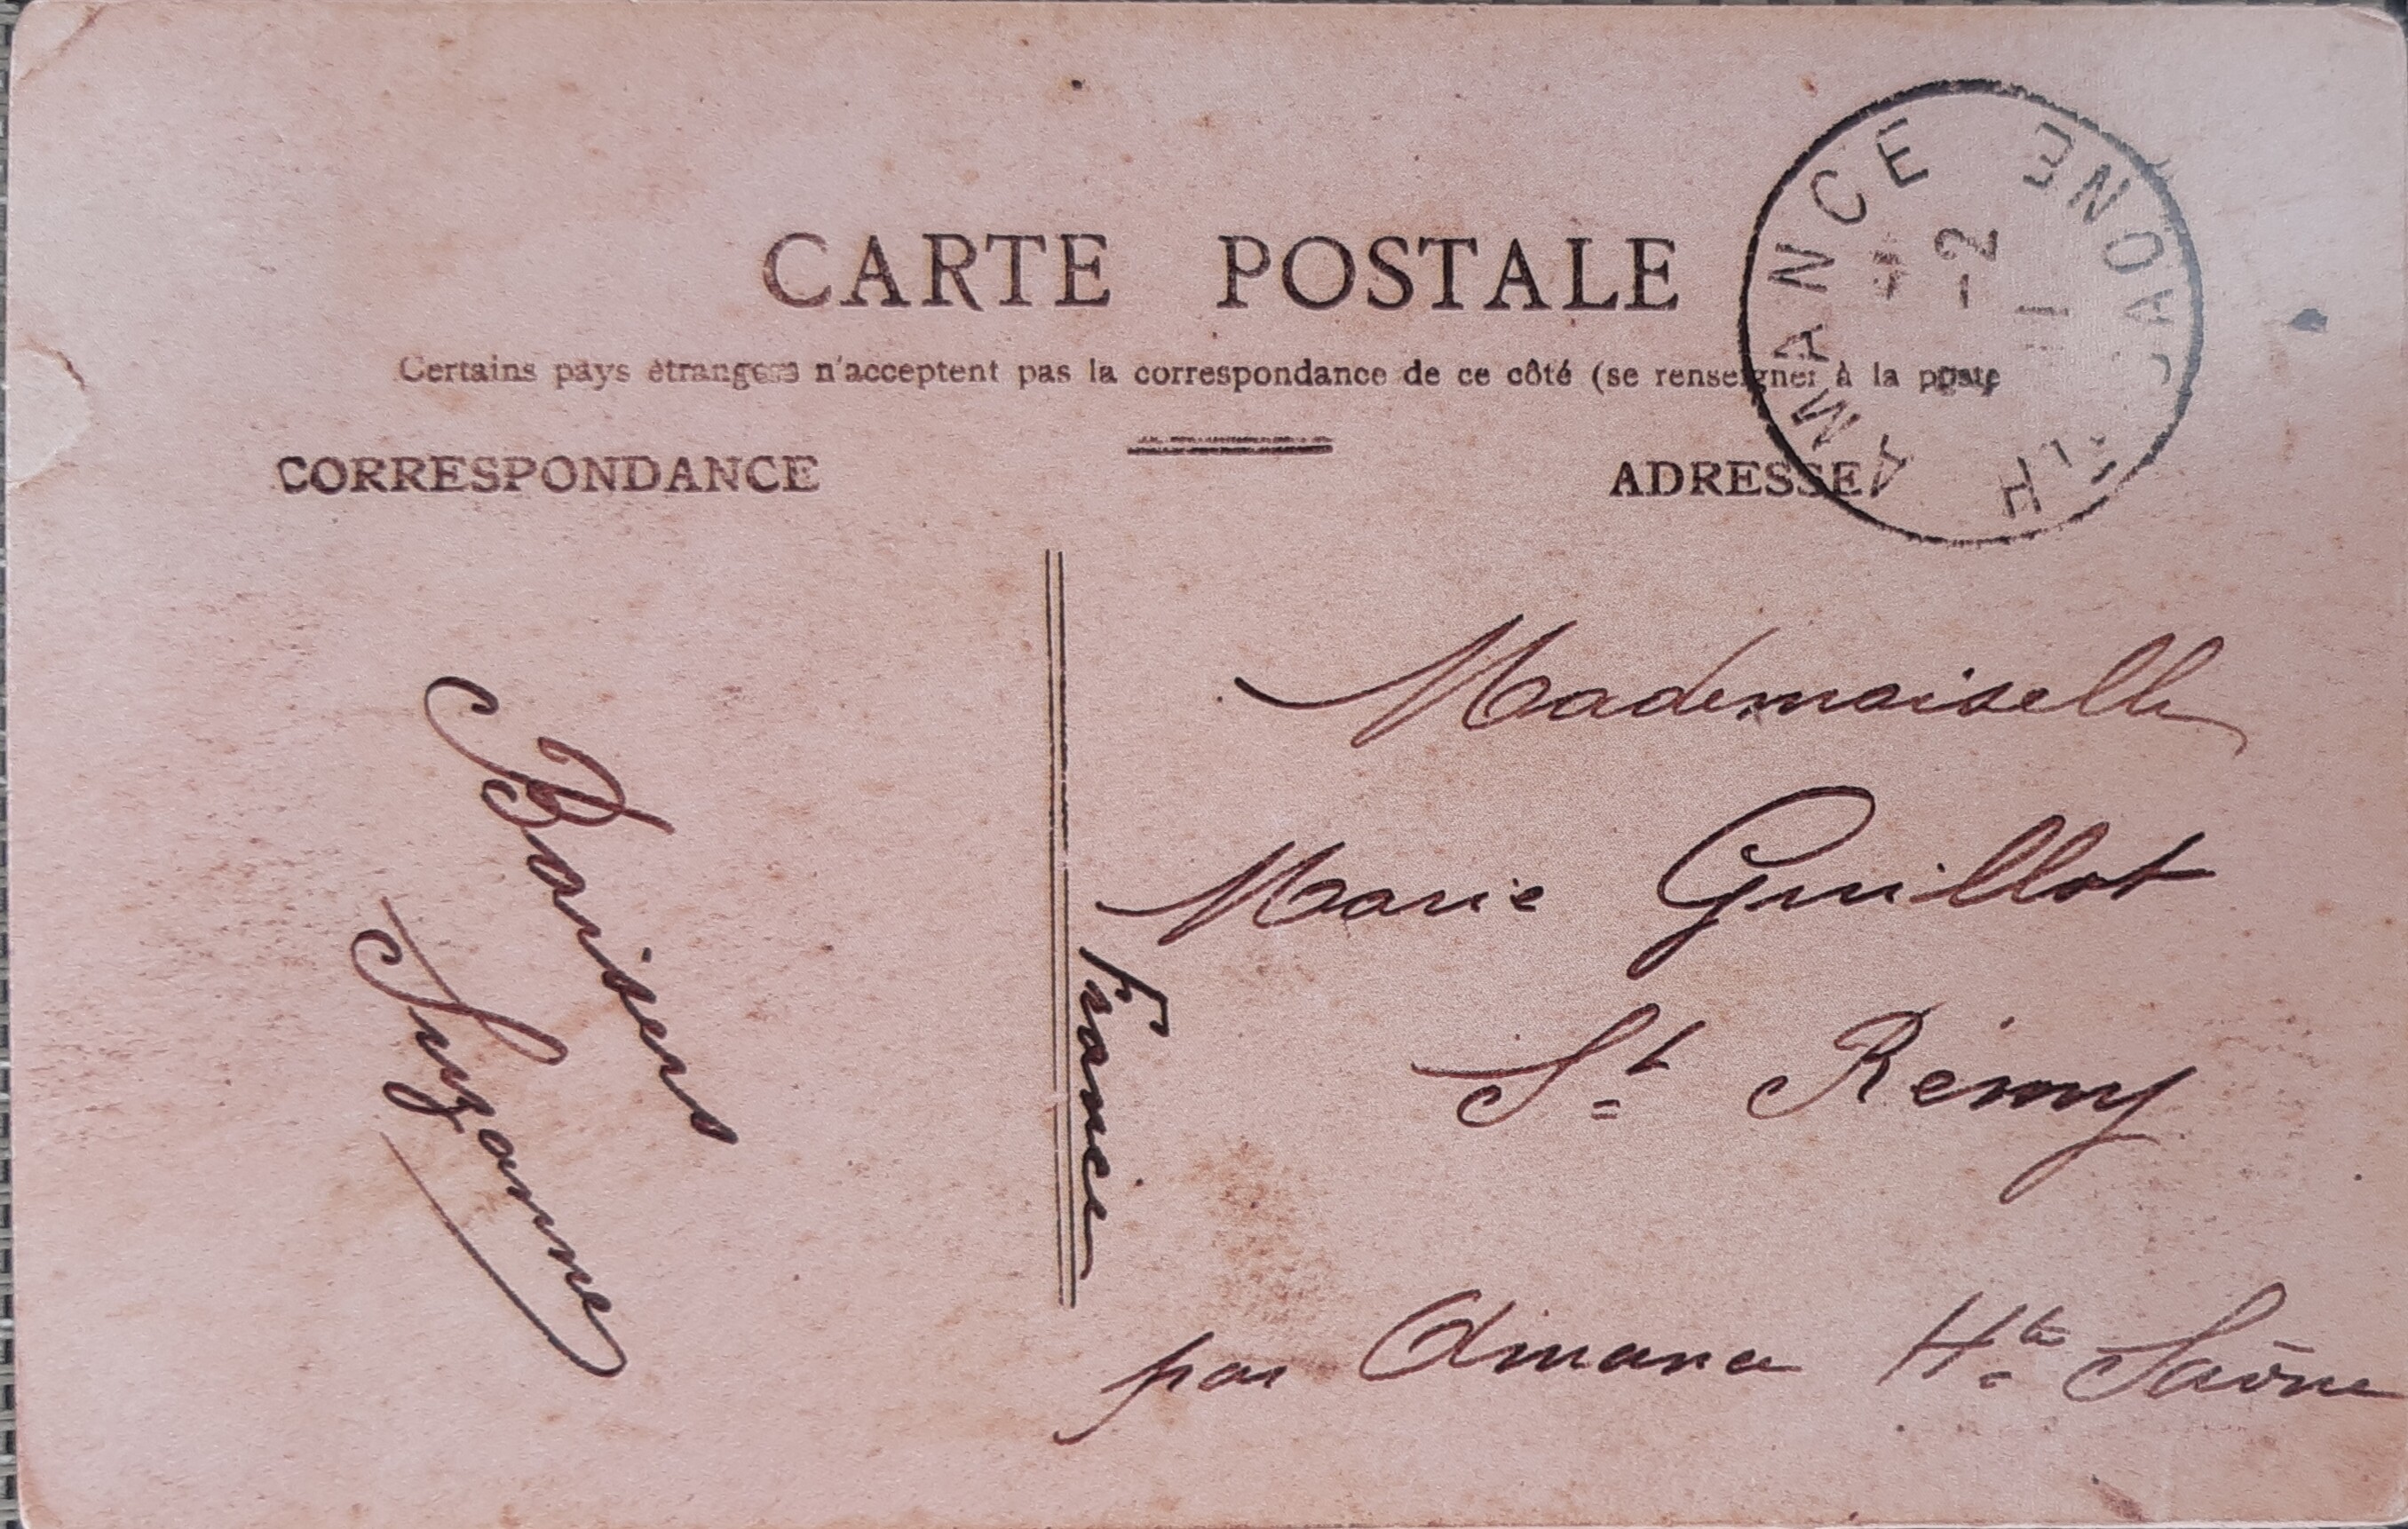 CARTE POSTALE
Certains pays étrangers n'acceptent pas la correspondance de ce côté (se renseigner à la poste
CORRESPONDANCE
ADRESSE
AMANCE
HTE SAONE
-2
11
Baisers
Suzanne
Mademoiselle
Marie Guillot
St Rémy
par Amance Hte Saône
France